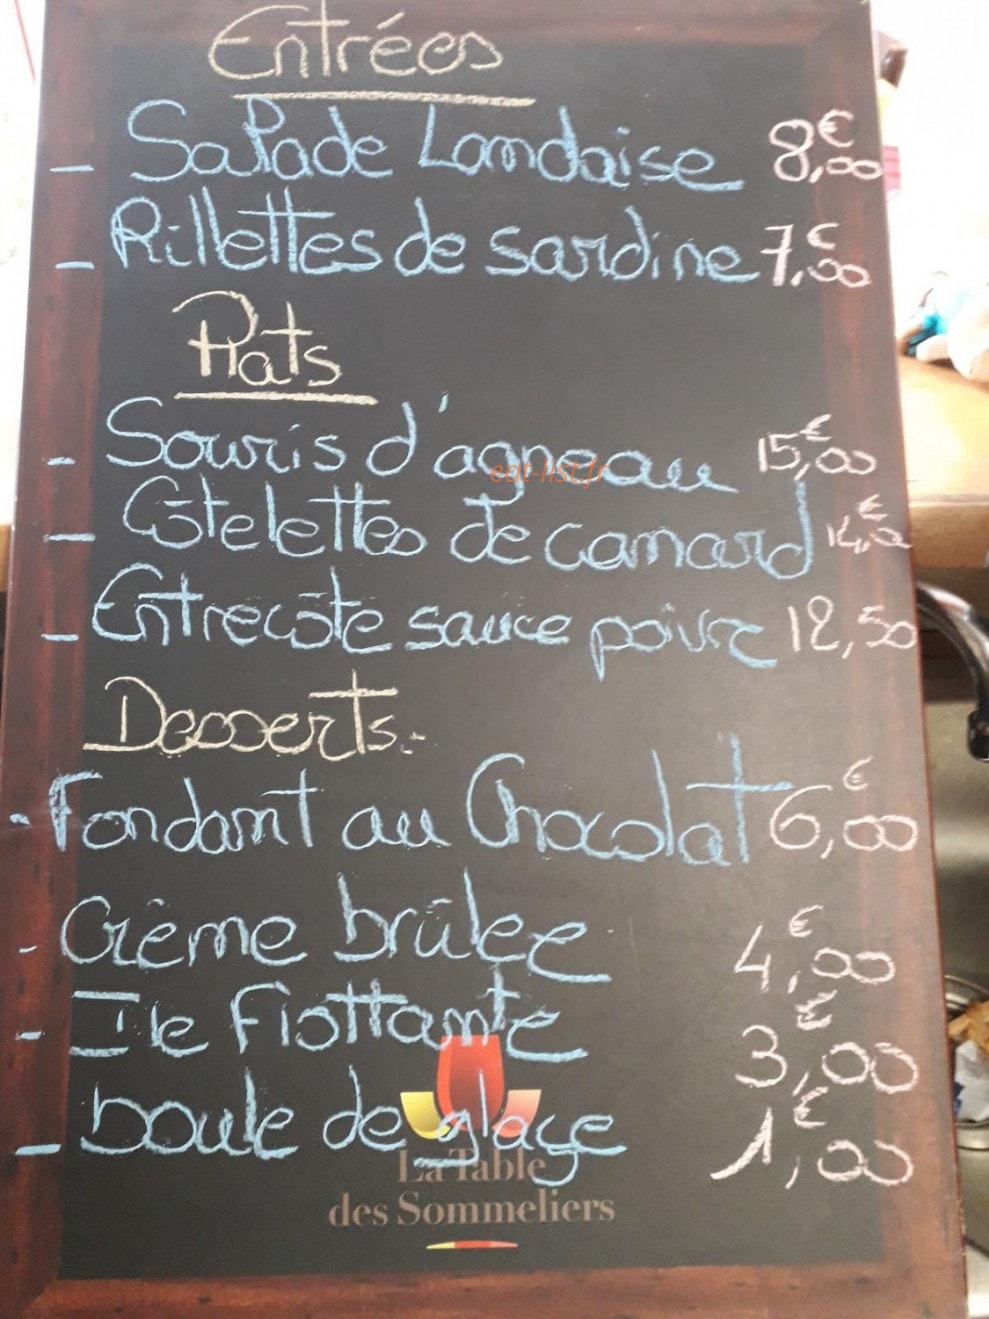 Entrées
- Salade Landaise 8,€00
- Rillettes de sardine 7,€00
Plats
- Souris d'agneau 15,€00
eat-list.fr
- Côtelettes de canard 14,€00
- Entrecôte sauce poivre 12,50
Desserts.-
- Fondant au Chocolat 6,€00
- Crème brûlée 4,€00
- Ile Flottante 3,€00
- boule de glaçe 1,€00
La Table
des Sommeliers